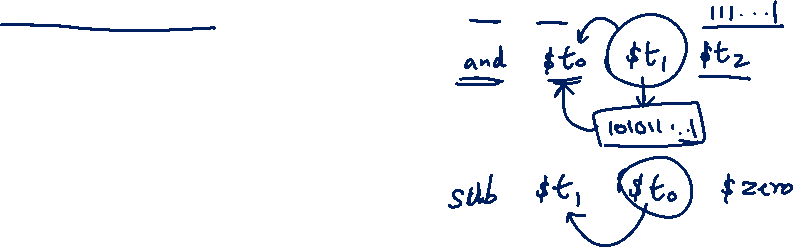 111...1
and $t0 $t1 $t2
101011...1
sub $t1 $t0 $zero